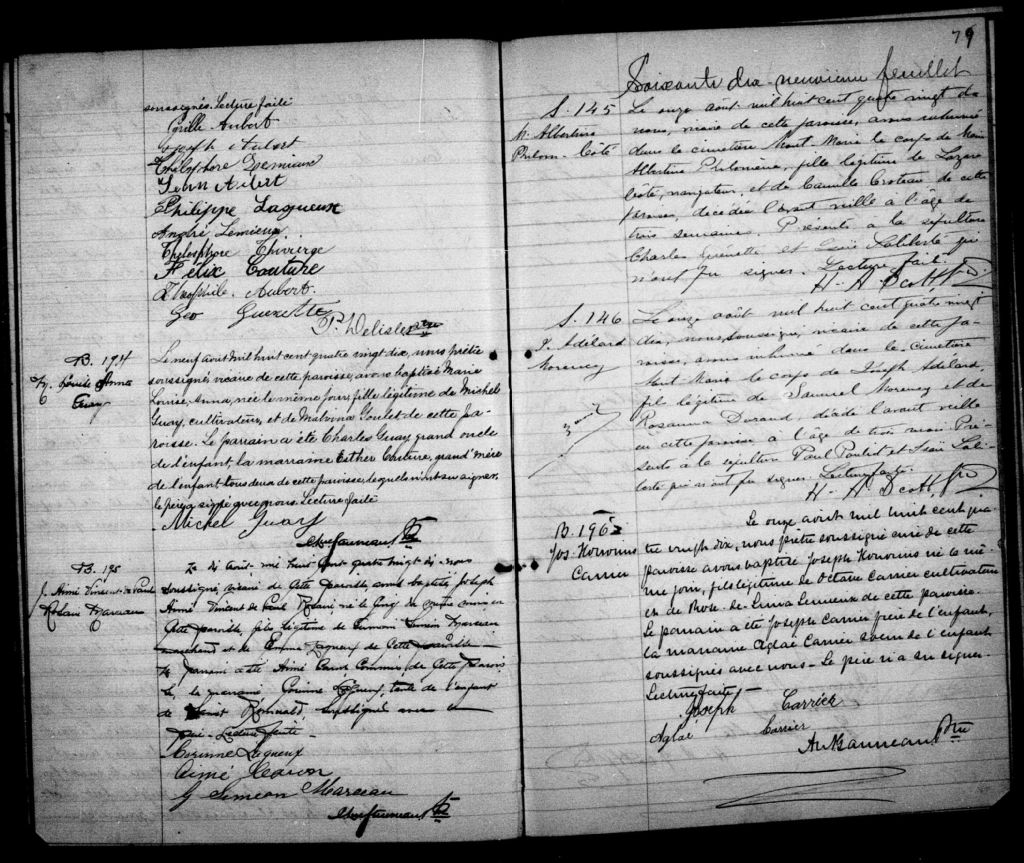 soussignés. Lecture faite
Cyrille Aubert
Joseph Aubert
Thélesphore Lemieux
Jean Aubert
Philippe Lagueux
André Lemieux
Thélesphore Thivierge
Félix Couture
Théophile Aubert
Geo Guenette
P. Delisle ptre
B. 194
M. Louise Anna
Guay
Le neuf août mil huit cent quatre vingt dix, nous prêtre
soussigné, vicaire de cette paroisse, avons baptisé Marie
Louise, Anna, née le même jour, fille légitime de Michel
Guay, cultivateur, et de Malvina Goulet de cette pa-
roisse. Le parrain a été Charles Guay, grand oncle
de l'enfant, la marraine Esther Couture, grand'mère
de l'enfant tous deux de cette paroisse, lesquels n'ont su signer,
le père a signé avec nous. Lecture faite
Michel Guay
B. 195
J. Aimé Vincent de Paul
Rosario Marceau
Le dix août mil huit cent quatre vingt dix nous
soussigné, vicaire de cette paroisse avons baptisé Joseph
Aimé Vincent de Paul Rosario né le cinq du courant en
cette paroisse, fils légitime de Siméon Marceau
marchand et de Emma Lagueux de cette paroisse
Le parrain a été Aimé Caron Commis de cette paroisse
la marraine Corinne Lagueux, tante de l'enfant
de Saint Romuald, soussignés avec le
père. Lecture faite
Corinne Lagueux
Aimé Caron
J Siméon Marceau
79
Soixante dix-neuvième feuillet
S. 145
M. Albertine
Philom. Côté
Le onze août mil huit cent quatre vingt dix
nous, vicaire de cette paroisse, avons inhumé
dans le cimetière Mont-Marie le corps de Marie
Albertine Philomène, fille légitime de Lazare
Côté, navigateur, et de Camille Croteau de cette
paroisse, décédée l'avant veille à l'âge de
trois semaines. Présents à la sépulture
Charles Guénette et Laliberté qui
n'ont pu signer. Lecture faite.
H. A Scott Ptr.
S. 146
J. Adélard
Morency
Le onze août mil huit cent quatre vingt
dix, nous, soussigné, vicaire de cette pa-
roisse, avons inhumé dans le cimetière
Mont-Marie le corps de Joseph Adélard,
fils légitime de Samuel Morency et de
Rosanna Durand décédé l'avant veille
en cette paroisse à l'âge de trois mois. Pré-
sents à la sépulture Paul Pouliot et Lal-
iberté qui n'ont pu signer. Lecture faite.
H. A Scott Ptr
B. 196
Jos. Honorius
Carrier
Le onze août mil huit cent qua-
tre vingt dix, nous prêtre soussigné curé de cette
paroisse avons baptisé Joseph Honorius né le mê-
me jour, fils légitime de Octave Carrier cultivateur
et de Rose-de-Lima Lemieux de cette paroisse.
Le parrain a été Joseph Carrier frère de l'enfant,
la marraine Aglaé Carrier soeur de l'enfant
soussignés avec nous. Le père n'a su signer
Lecture faite
Joseph Carrier
Aglaé Carrier